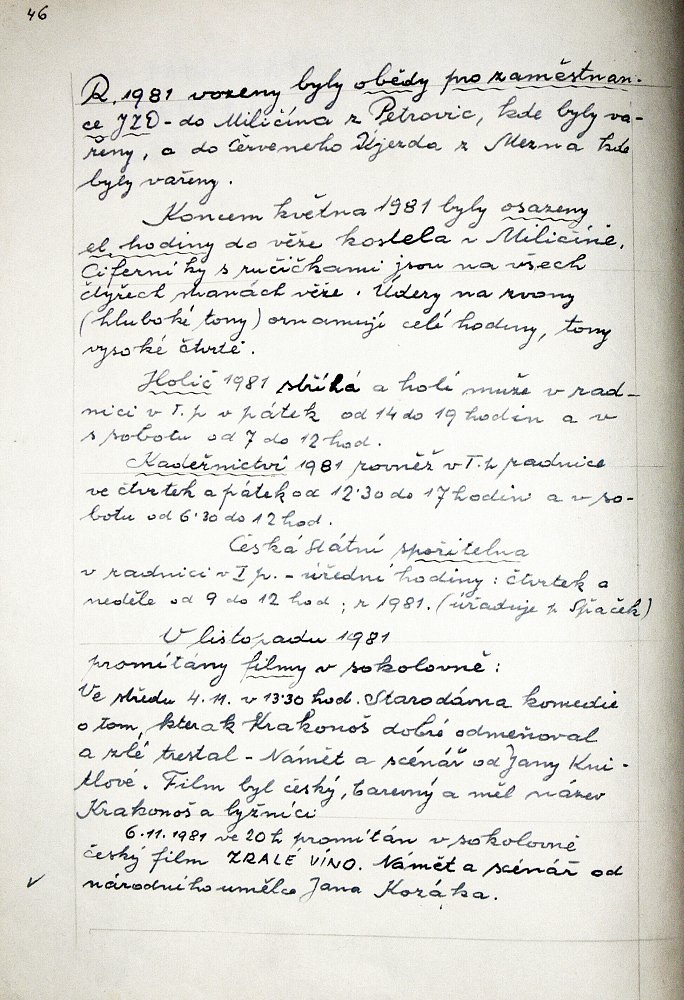 46
R. 1981 vozeny byly obědy pro zaměstnan-
ce JZD - do Miličína z Petrovic, kde byly va-
řeny, a do Červeného Újezda z Mezna kde
byly vařeny.
Koncem května 1981 byly osazeny
el. hodiny do věže kostela v Miličíně.
Ciferníky s ručičkami jsou na všech
čtyřech stranách věže. Údery na zvony
(hluboké tóny) oznamují celé hodiny, tony
vysoké čtvrtě.
Holič 1981 stříhá a holí muže v rad-
nici v I. p v pátek od 14 do 19 hodin a v
s sobotu od 7 do 12 hod.
Kadeřnictví 1981 rovněž v I. p radnice
ve čtvrtek a pátek od 12·30 do 17 hodin a v so-
botu od 6·30 do 12 hod.
Česká státní spořitelna
v radnici v I p. - úřední hodiny: čtvrtek a
neděle od 9 do 12 hod; r 1981. (úřaduje p. Spaček)
V listopadu 1981
promítány filmy v sokolovně:
Ve středu 4.11. v 13·30 hod. Starodávna komedie
o tom, kterak Krakonoš dobré odměňoval
a zlé trestal - Námět a scénář od Jany Kni-
tlové. Film byl český, barevný a měl název
Krakonoš a lyžníci
6.11.1981 ve 20 h promítán v sokolovně
český film ZRALÉ VÍNO. Námět a scénář od
národního umělce Jana Kozáka.